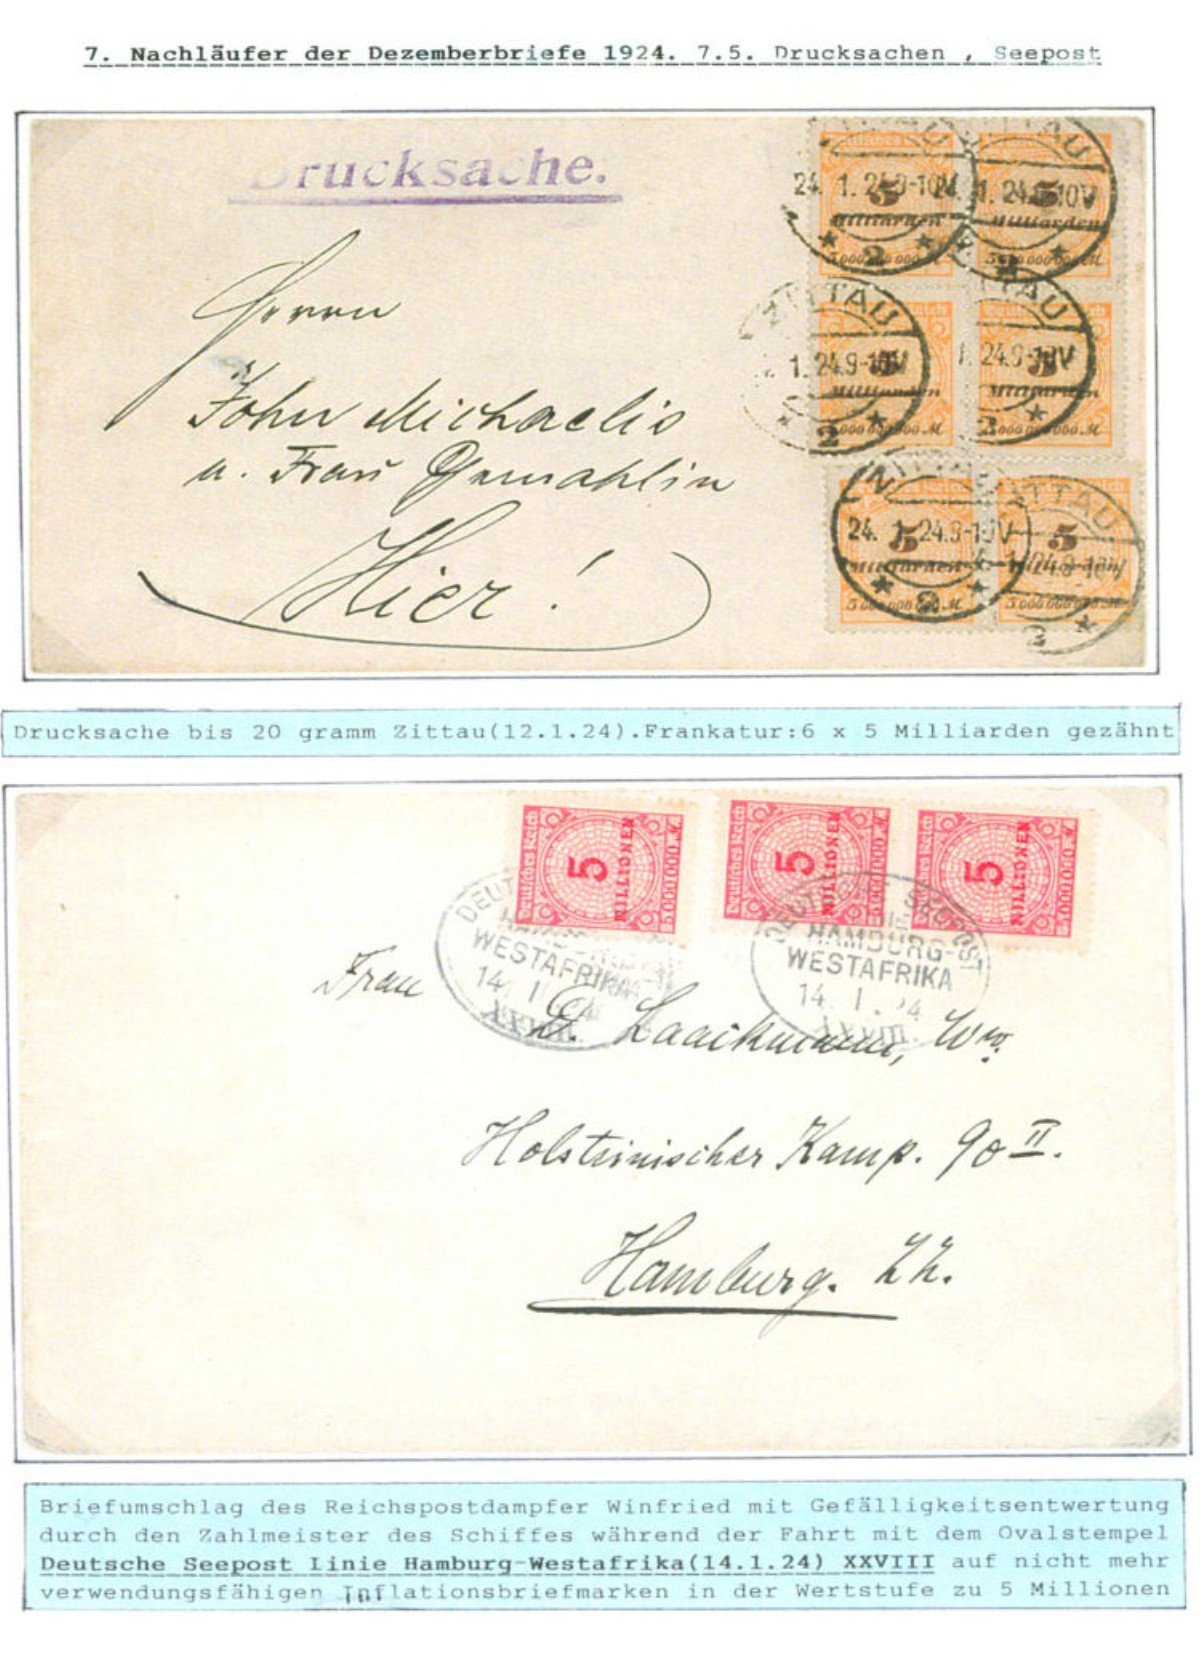 7. Nachläufer der Dezemberbriefe 1924. 7.5. Drucksachen , Seepost
Drucksache.
ZITTAU
24. 1. 24.9-10V
2
5
Milliarden
5 000 000 000 M
Herrn
John Michaelis
u. Frau Gemahlin
Hier!
Drucksache bis 20 gramm Zittau(12.1.24).Frankatur:6 x 5 Milliarden gezähnt
Deutsches Reich
5
MILLIONEN
5 000 000 M
Deutsches Reich
5
MILLIONEN
5 000 000 M
Deutsches Reich
5
MILLIONEN
5 000 000 M
HAMBURG-
WESTAFRIKA
14. I. 24
XXVIII.
Frau Laackmann, Ww.
Holsteinischer Kamp. 90 II.
Hamburg.
Briefumschlag des Reichspostdampfer Winfried mit Gefälligkeitsentwertung
durch den Zahlmeister des Schiffes während der Fahrt mit dem Ovalstempel
Deutsche Seepost Linie Hamburg-Westafrika(14.1.24) XXVIII auf nicht mehr
verwendungsfähigen Inflationsbriefmarken in der Wertstufe zu 5 Millionen